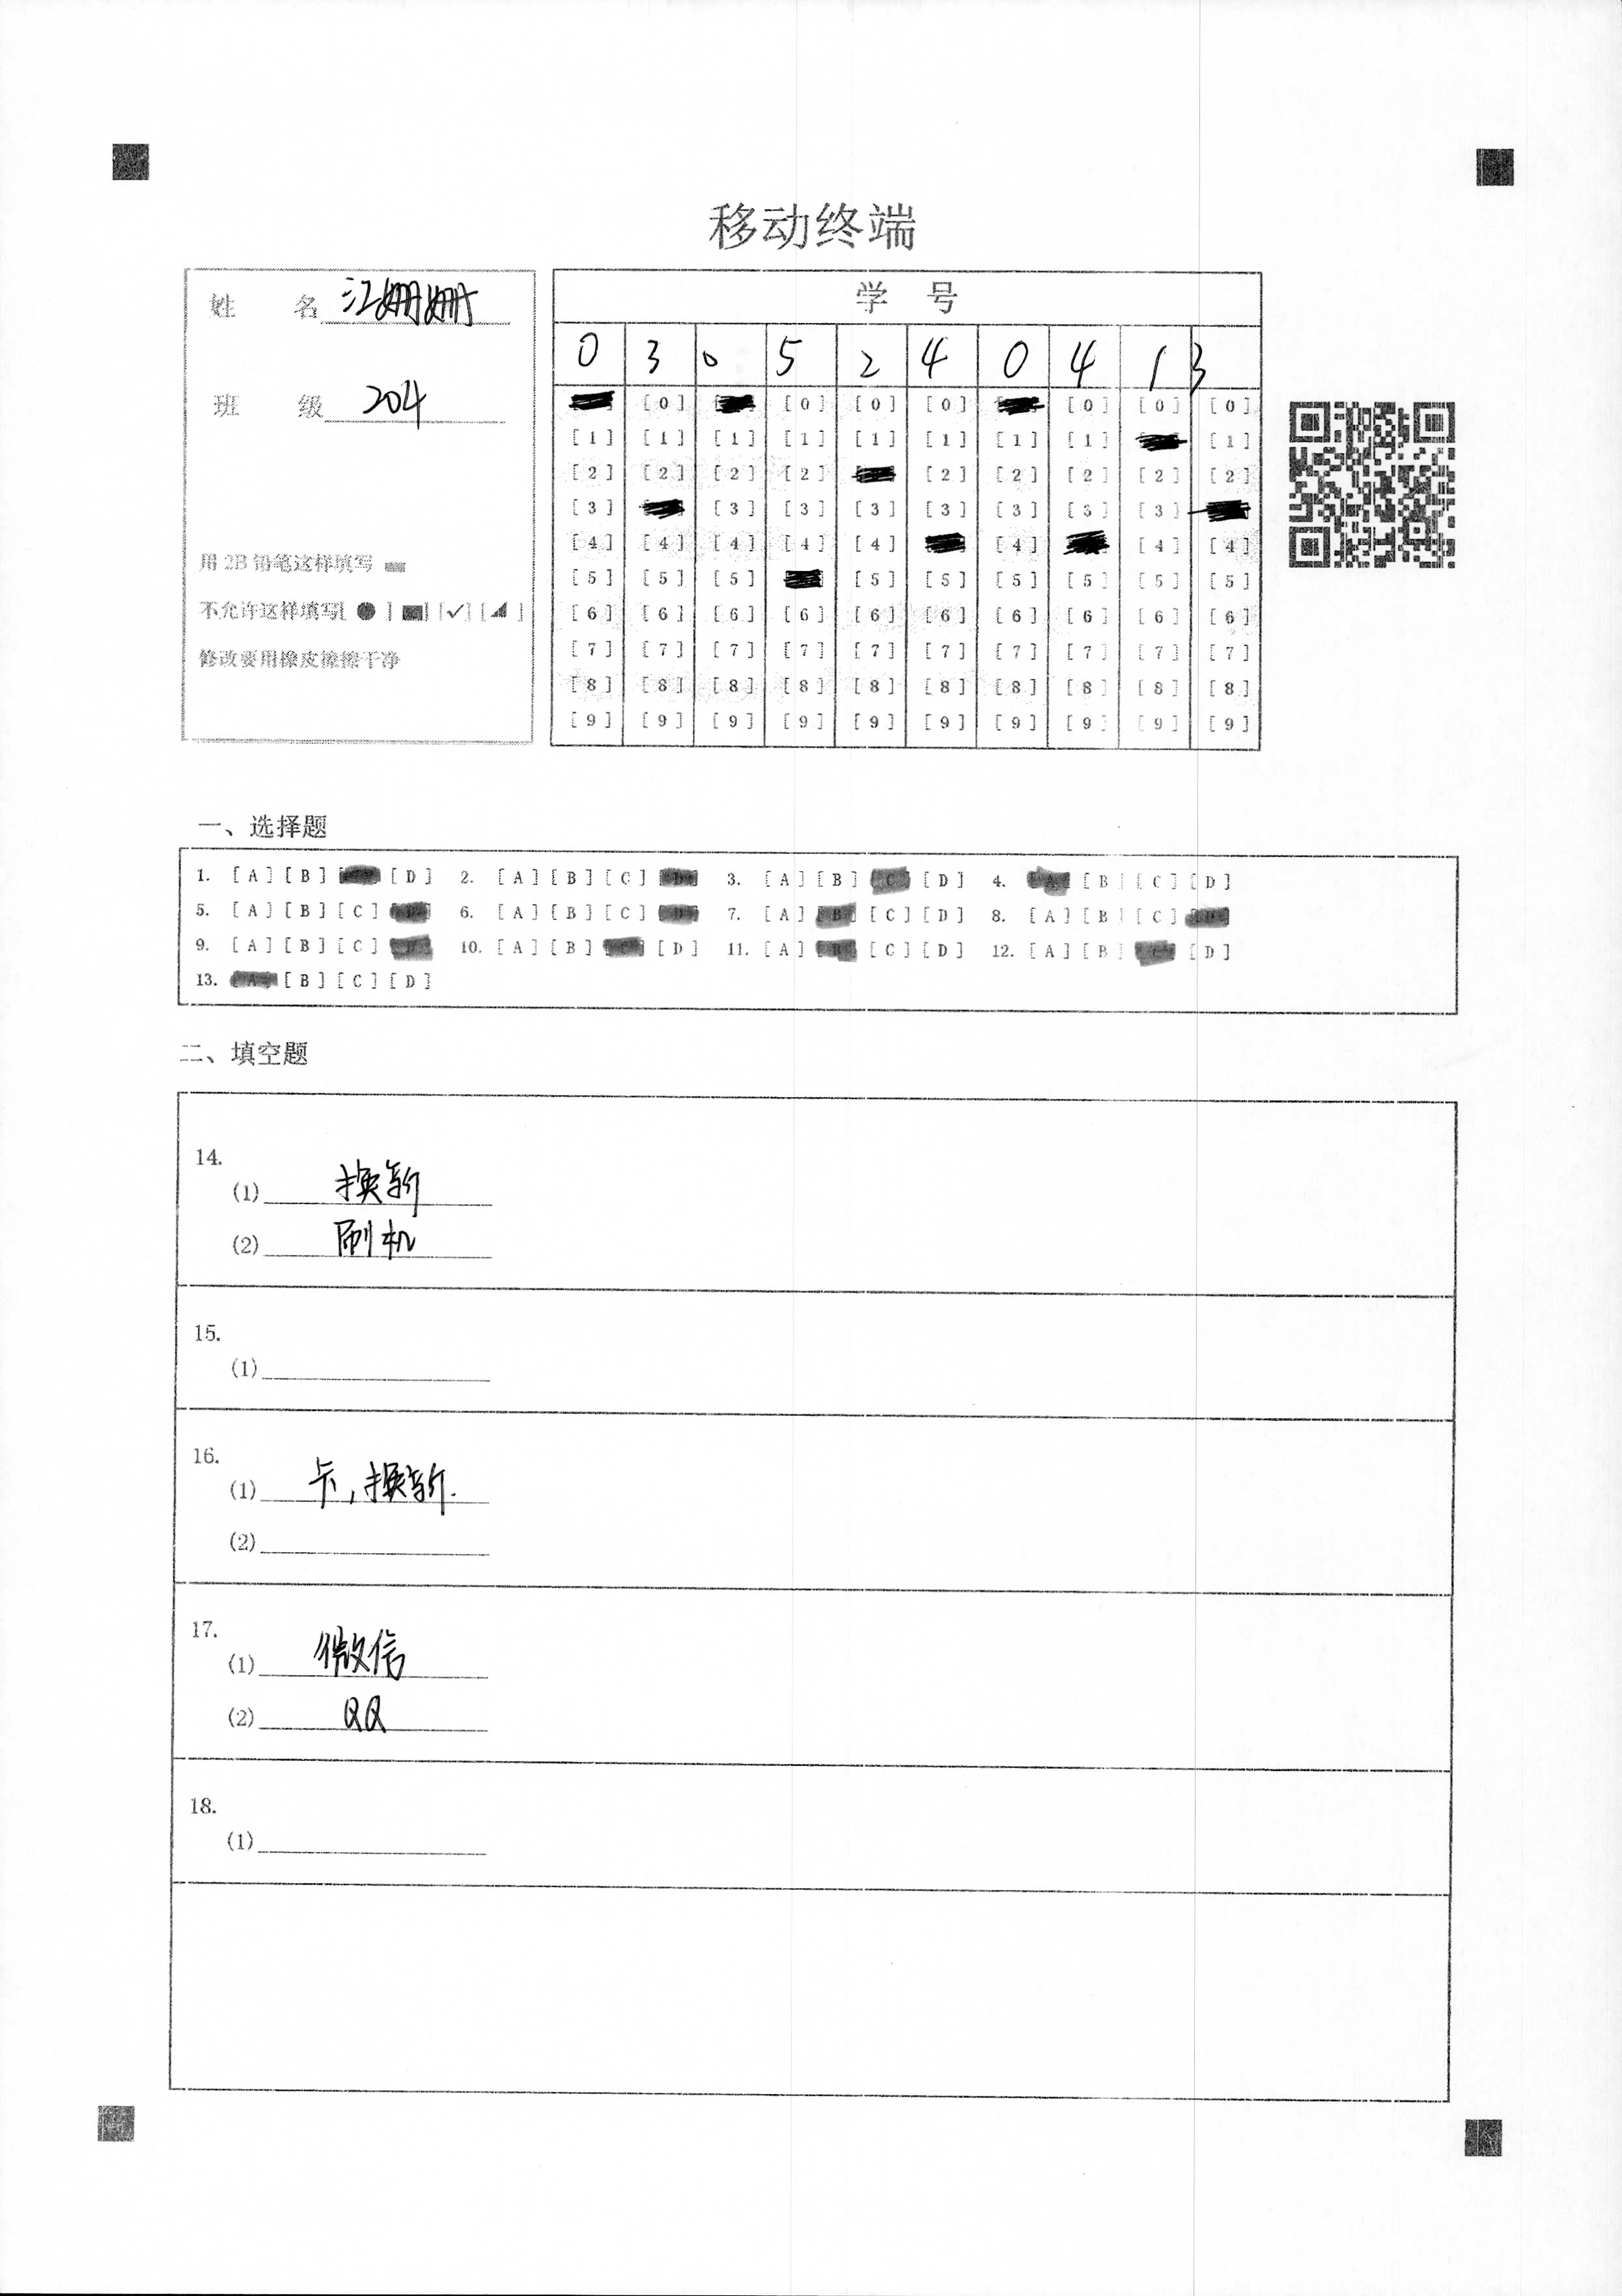 移动终端
姓 名 江姗姗
班 级 204
用 2B 铅笔这样填写
不允许这样填写[ ● ] [■] [✓] [◢ ]
修改要用橡皮擦擦干净
学 号
0 3 0 5 2 4 0 4 1 3
[0] [0] [0] [0] [0] [0] [0]
[1] [1] [1] [1] [1] [1] [1] [1] [1]
[2] [2] [2] [2] [2] [2] [2] [2] [2]
[3] [3] [3] [3] [3] [3] [3] [3]
[4] [4] [4] [4] [4] [4] [4] [4]
[5] [5] [5] [5] [5] [5] [5] [5] [5]
[6] [6] [6] [6] [6] [6] [6] [6] [6] [6]
[7] [7] [7] [7] [7] [7] [7] [7] [7] [7]
[8] [8] [8] [8] [8] [8] [8] [8] [8] [8]
[9] [9] [9] [9] [9] [9] [9] [9] [9] [9]
一、选择题
1. [A] [B] [D] 2. [A] [B] [C] [D] 3. [A] [B] [C] [D] 4. [A] [B] [C] [D]
5. [A] [B] [C] [D] 6. [A] [B] [C] [D] 7. [A] [B] [C] [D] 8. [A] [B] [C] [D]
9. [A] [B] [C] [D] 10. [A] [B] [C] [D] 11. [A] [B] [C] [D] 12. [A] [B] [C] [D]
13. [A] [B] [C] [D]
二、填空题
14.
(1) 换新
(2) 刷机
15.
(1)
16.
(1) 卡,换新.
(2)
17.
(1) 微信
(2) QQ
18.
(1)